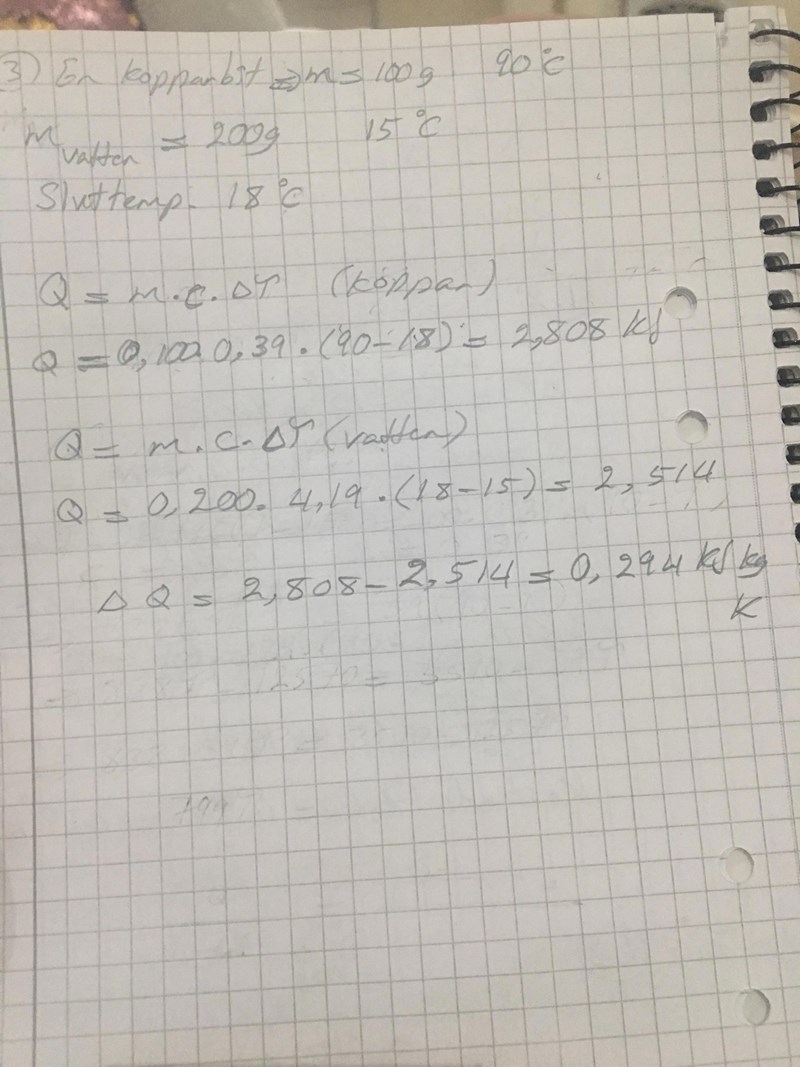 3) En kopparbit => m = 100g 90°C
m vatten = 200g 15°C
Sluttemp. 18°C
Q = m.c.ΔT (koppar)
Q = 0,100.0,39.(90-18) = 2,808 KJ
Q = m.c.ΔT (vatten)
Q = 0,200. 4,19.(18-15) = 2,514
ΔQ = 2,808 - 2,514 = 0,294 KJ kg
K